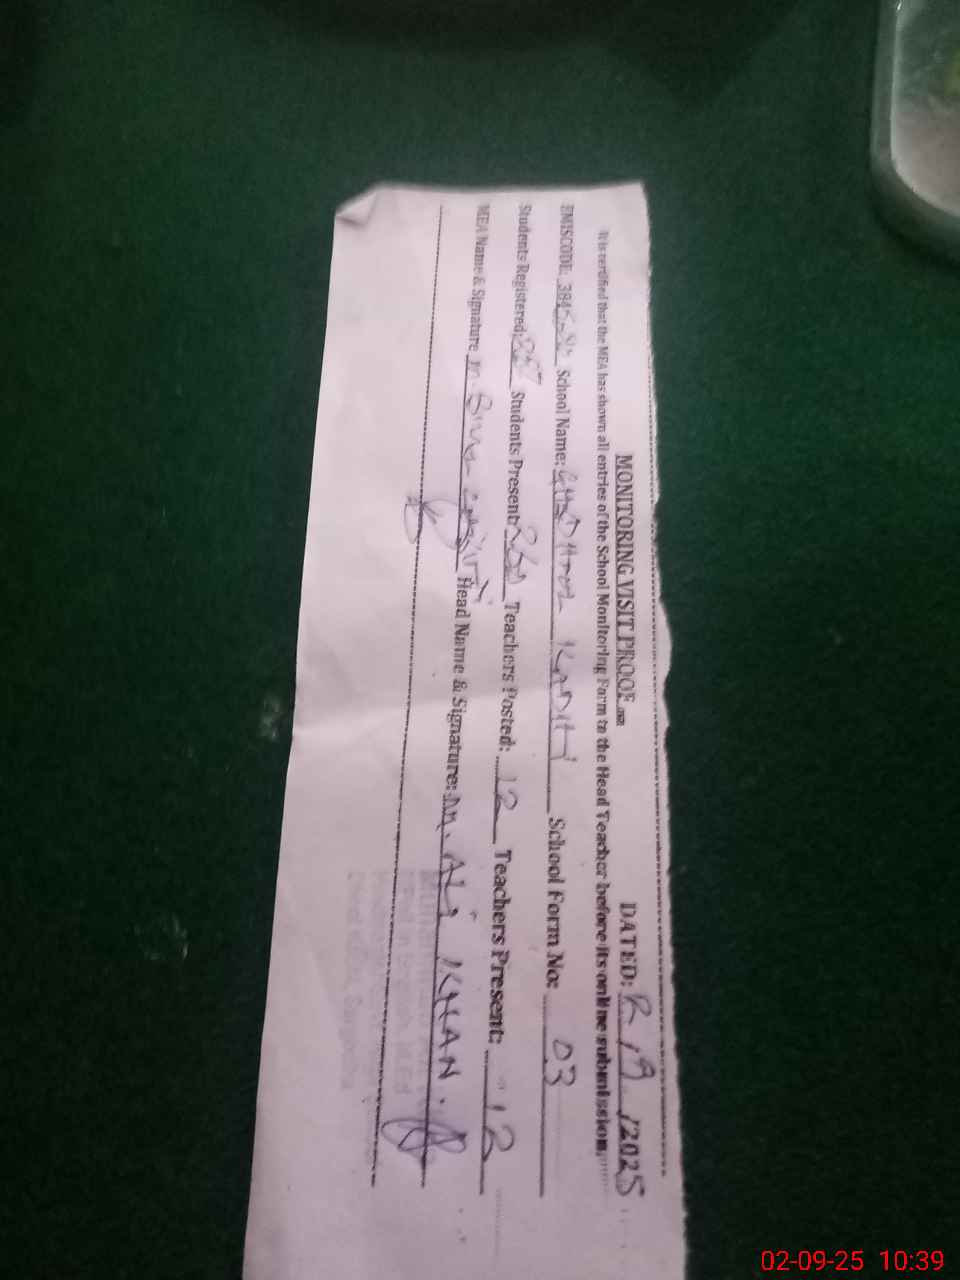 MONITORING VISIT PROOF DATED: 2 / 9 / 2025
It is certified that the MEA has shown all entries of the School Monitoring Form to the Head Teacher before its online submission.
EMISCODE: School Name: KADHI School Form No: 03
Students Registered: Students Present: 260 Teachers Posted: 12 Teachers Present: 12
MEA Name & Signature M Head Name & Signature: M. ALi KHAN
02-09-25 10:39